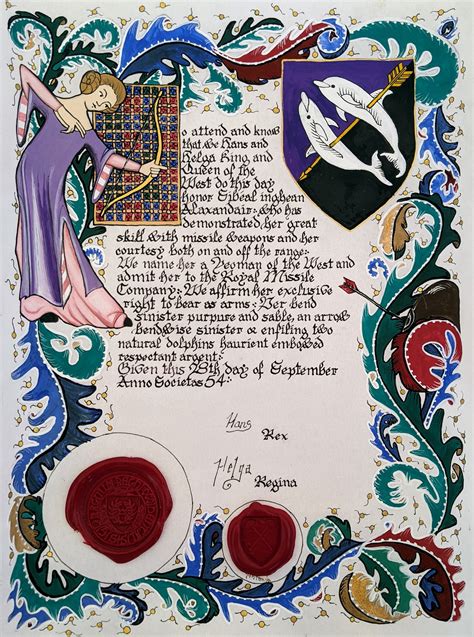 So attend and know
that we Hans and
Helga King and
Queen of the
West do this day
honor Sibeal inghean
Alaxandair: who has
demonstrated her great
skill with missile weapons and her
courtesy both on and off the range:
We name her a Yeoman of the West and
admit her to the Royal Missile
Company: We affirm her exclusive
right to bear as arms: Per bend
sinister purpure and sable, an arrow
bendwise sinister Or enfiling two
natural dolphins haurient embowed
respectant argent:
Given this 28th day of September
Anno Societas 54:
Hans
Rex
Helga
Regina